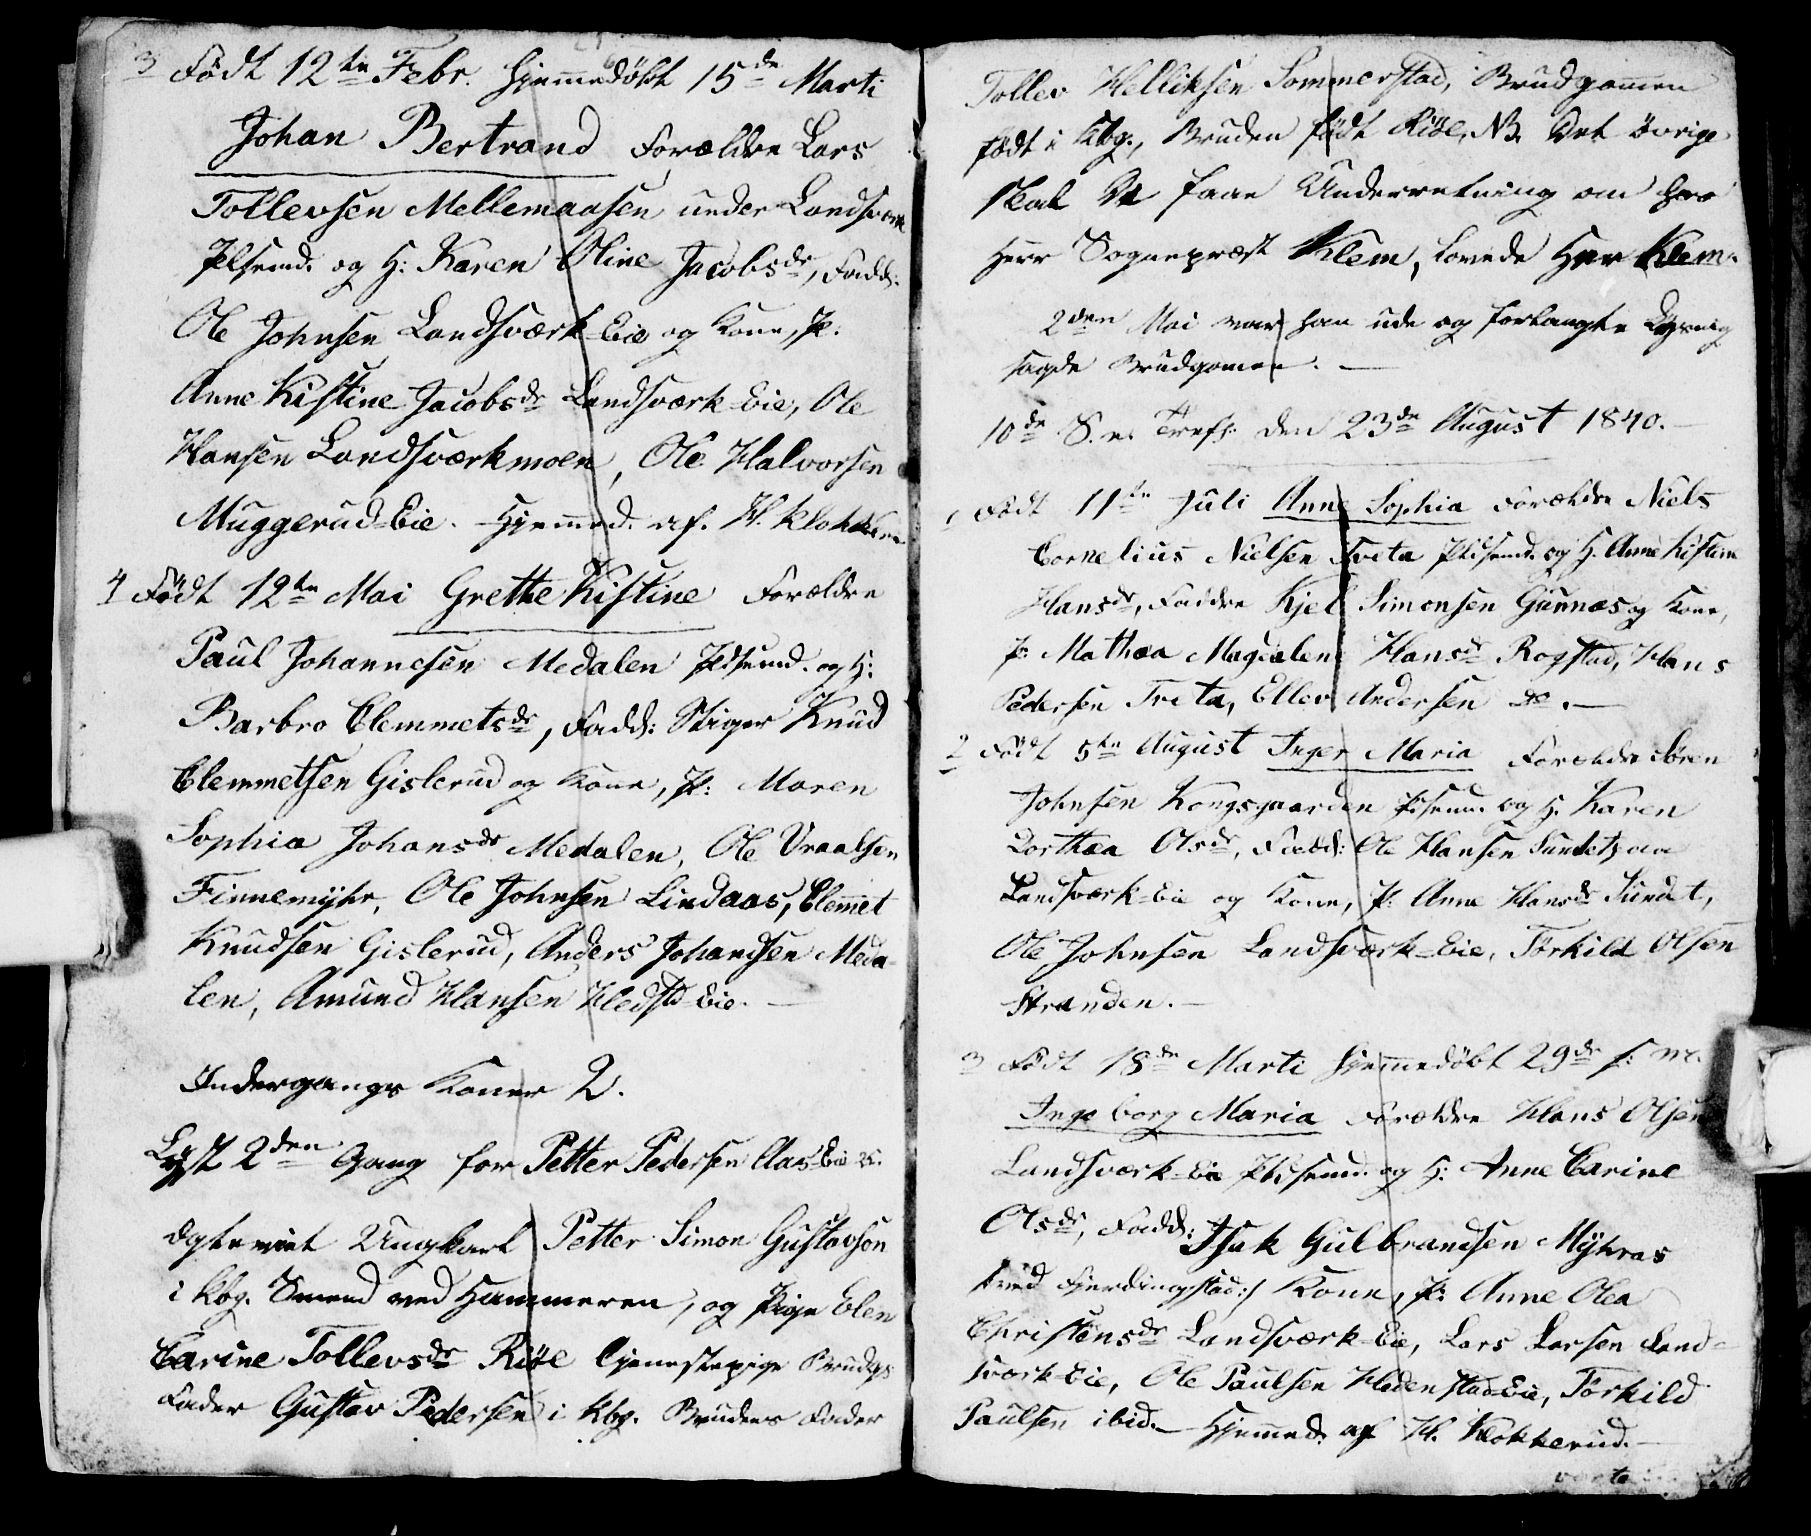 3 Födt 12te Febr. hjemmedöbt 15de Marti
Johan Bertrand Forældre Lars
Tollevsen Mellemaasen under Landsværk
Plsmd. og H: Karen Oline Jacobsdr, Fadd:
Ole Johnsen Landsværk-Eie og Kone, P:
Anne Kistine Jacobsdr Landsværk-Eie, Ole
Hansen Landsværkmoen, Ole Halvorsen
Muggerud-Eie. Hjemmed. af. H. Klokkerud
4 Födt 12te Mai Grethe Kistine Forældre
Paul Johannesen Medalen Pldsmd. og H:
Barbro Clemmetsdr, Fadd: Stiger Knud
Clemmetsen Gislerud og Kone, P: Maren
Sophia Johansdr Medalen, Ole Vraalsen
Finnemyhr, Ole Johnsen Lindaas, Clemet
Knudsen Gislerud, Anders Johansen Meda-
len, Amund Hansen Hedstd-Eie. —
Indergangs Koner 2.
Lyst 2den Gang for Petter Pedersen Aas-Eie
Ungkarl Petter Simon Gustavson
i Kbg. Smed ved Hammeren, og Pige Elen
Carine Tollevsdr Riöe tjenestepige Brudgs
Fader Gustav Pedersen i Kbg. Brudens Fader
Tollev Helliksen Sommerstad, Brudgommen
födt i Kbg., Bruden födt Riöe, NB. Det övrige
skal faae Underretning om hos
Herr Sognepræst Klem, lovede Herr Klem.
2den Mai var han ude og forlangte Lysning
sagde Brudgomen. —
10de S. e. Tref: den 23de August 1840. —
1 Födt 11te Juli Anne Sophia Forældre Niels
Cornelius Nielsen Tveta Pldsmd. og H. Anne Kistine
Hansdr, Faddre Kjel Simonsen Gunnæs og Kone,
P: Mathea Magdalene Hansdr Rogstad, Hans
Pedersen Tveta, Ellev Andersen do. —
2 Födt 5te August Inger Maria Forældre Sören
Johnsen Kongsgaarden Plsmd. og H. Karen
Dorthea Olsdr, Fadd: Ole Hansen Sundet paa
Landsværk-Eie og Kone, P: Anne Hansdr Sundet,
Ole Johnsen Landsværk-Eie, Törkild Olsen
Stranden. —
3 Födt 18de Marti hjemmedöbt 29de s: M.
Ingeborg Maria Forældre Hans Olsen
Landsværk-Eie Pldsmd. og H: Anne Carine
Olsdr, Fadd: Isak Gulbrandsen Myhras
Fjerdingstad :/ Kone, P: Anne Olea
Christensdr Landsværk-Eie, Lars Larsen Land-
sværk-Eie, Ole Paulsen Hedenstad-Eie, Törkild
Paulsen ibid. — Hjemmed: af H. Klokkerud. —